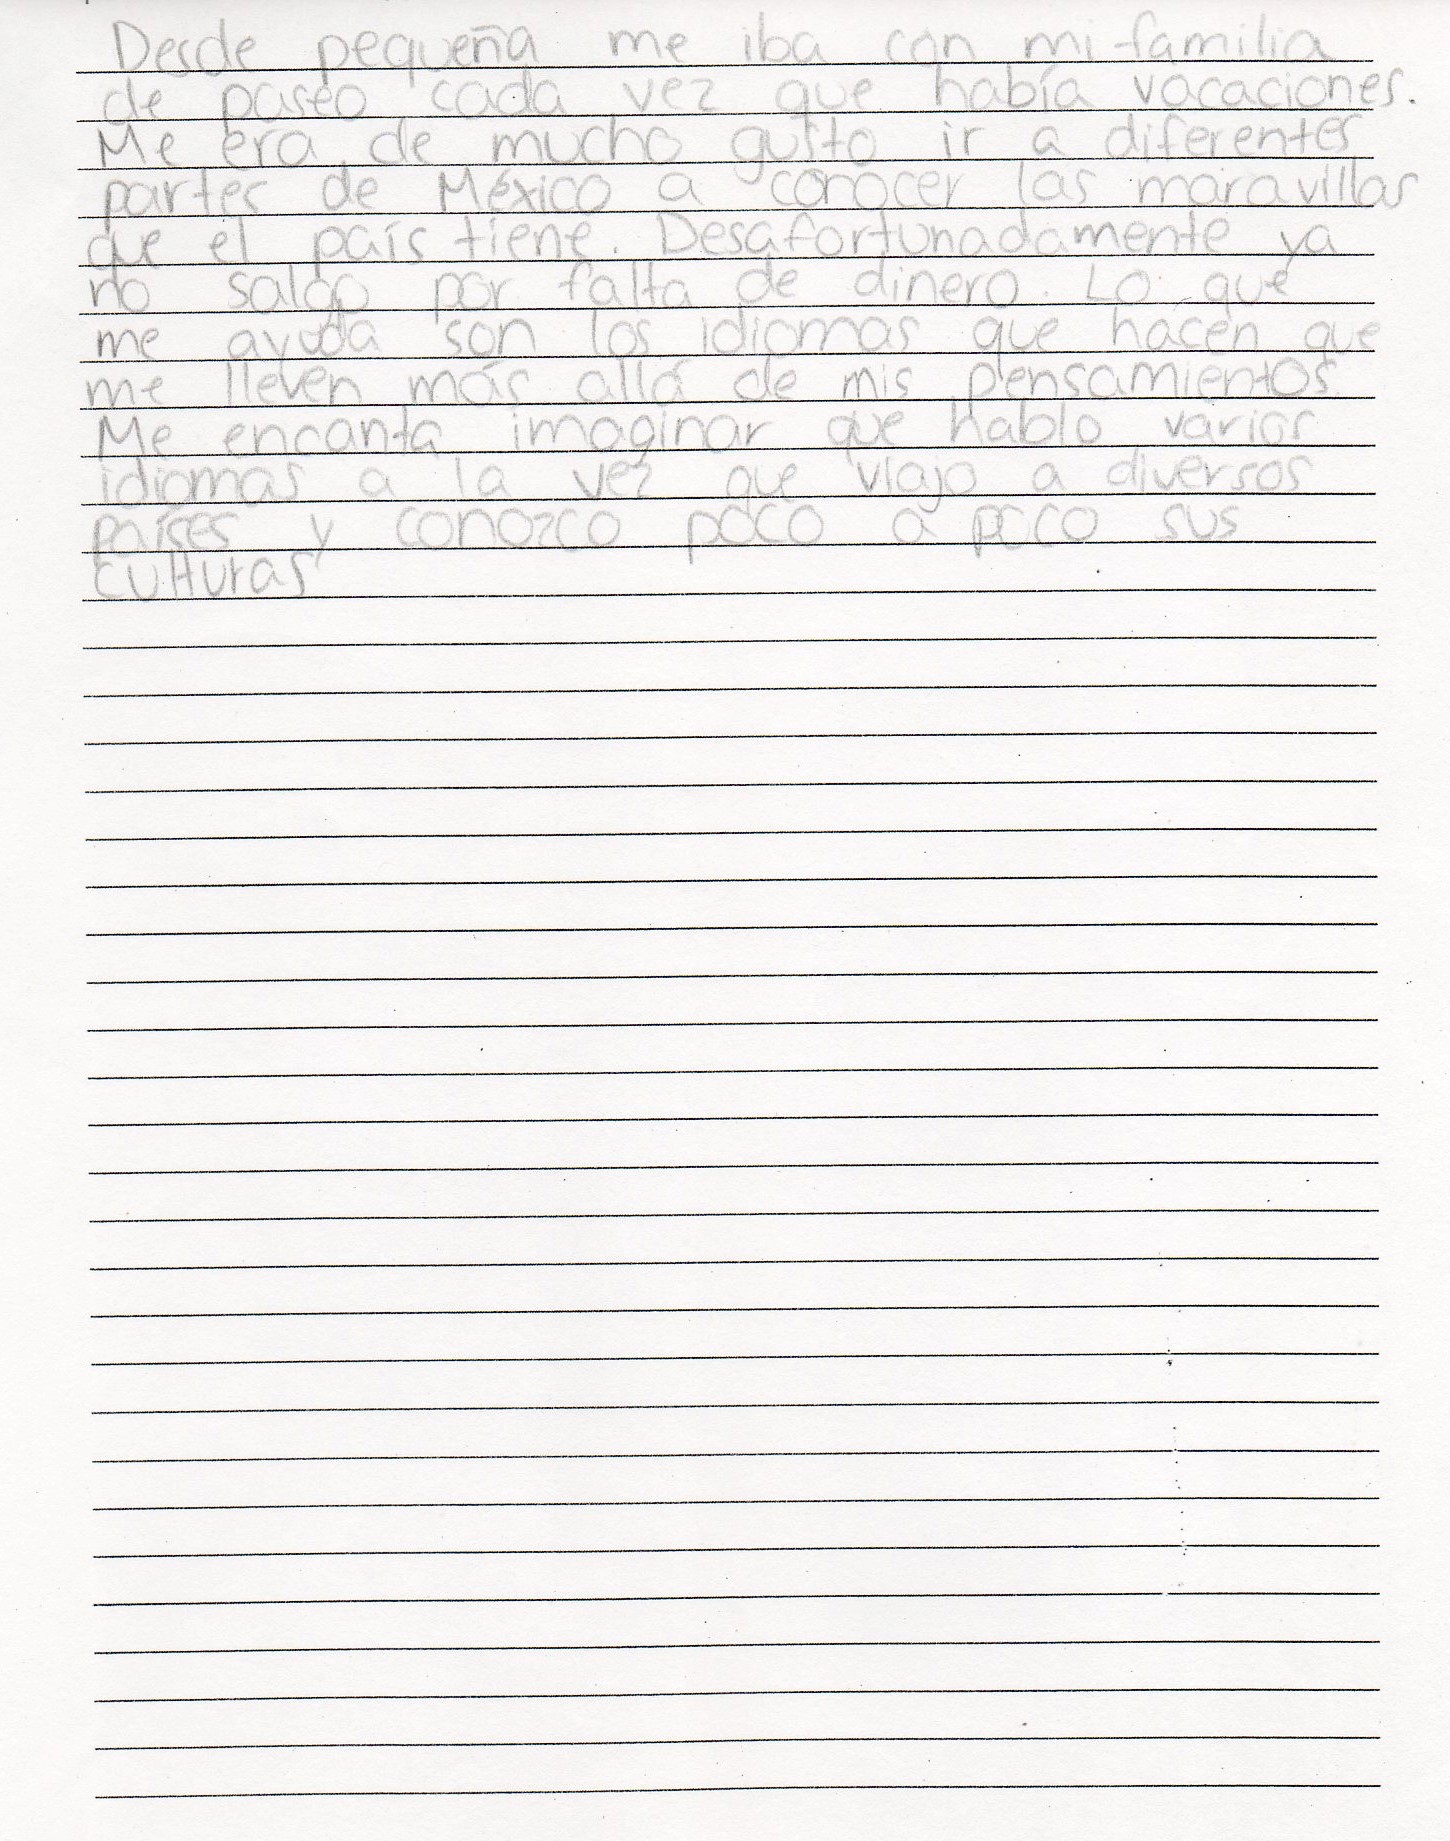 Desde pequeña me iba con mi familia
de paseo cada vez que había vacaciones.
Me era de mucho gusto ir a diferentes
partes de México a conocer las maravillas
que el país tiene. Desafortunadamente ya
no salgo por falta de dinero. Lo que
me ayuda son los idiomas que hacen que
me lleven más allá de mis pensamientos.
Me encanta imaginar que hablo varios
idiomas a la vez que viajo a diversos
países y conozco poco a poco sus
culturas